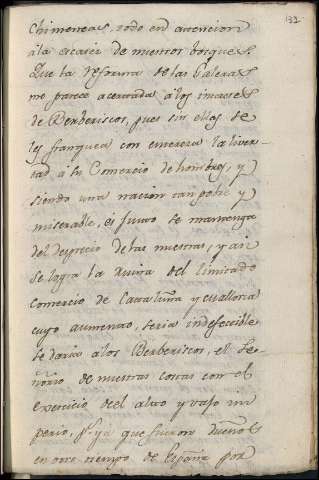 132
Chimeneas, todo en atencion
a la escasez de nuestros bosques.
Que la reforma de las Galeras
me parece acertada a los
de Berberiscos, pues sin ellas se
les franquea con entereza la liver-
tad a su Comercio de hombres, y
siendo una nacion tan pobre y
miserable, es justo se mantenga
del desprecio de las nuestras, y asi
se logra la Ruina del limitado
Comercio de Cataluña y Mallorca
cuyo aumento, seria indefectible
se daria a los Berberiscos, el Se-
ñorio de nuestras costas con el
exercicio del alto y vajo im
perio, pr. ya que fueron dueños
en otro tiempo de España por